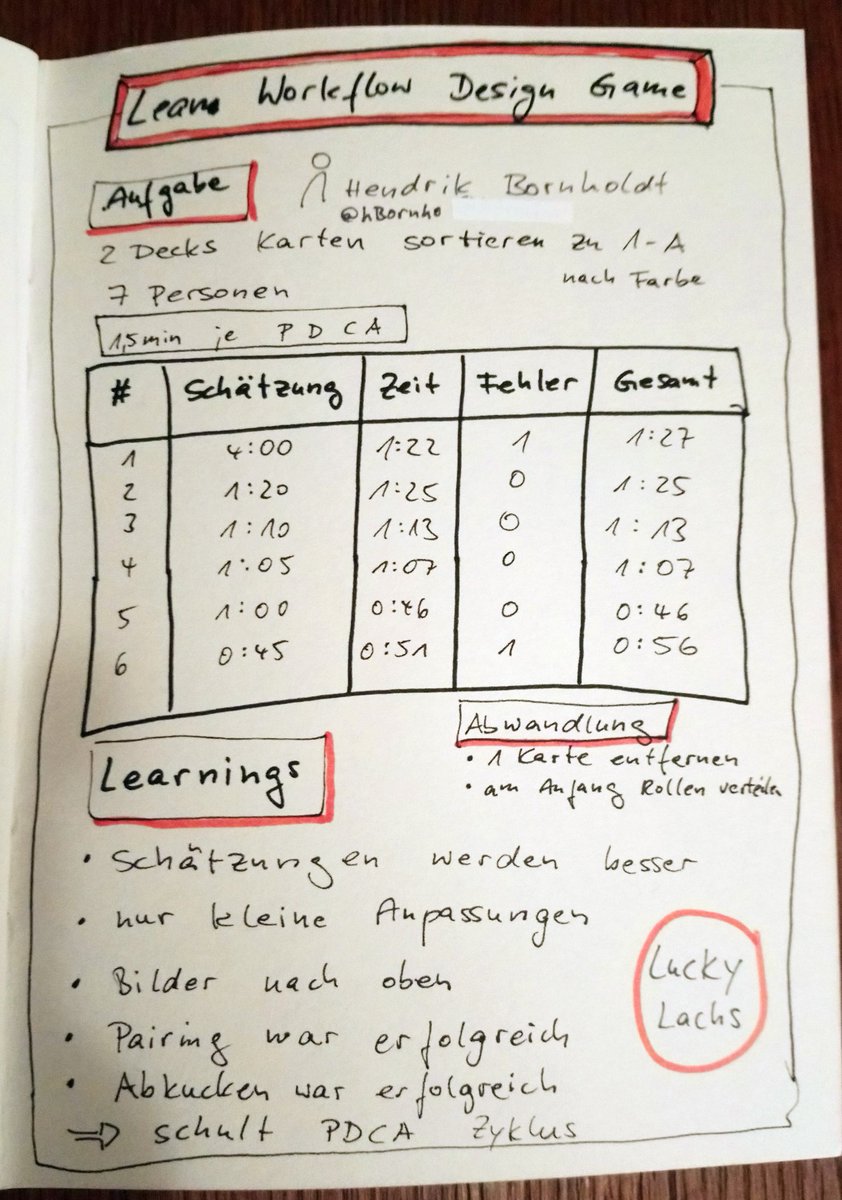 Lean Workflow Design Game
Aufgabe
Hendrik Bornholdt
@hBornho
2 Decks Karten sortieren zu 1-A
nach Farbe
7 Personen
1,5min je PDCA
# Schätzung Zeit Fehler Gesamt
1 4:00 1:22 1 1:27
2 1:20 1:25 0 1:25
3 1:10 1:13 0 1:13
4 1:05 1:07 0 1:07
5 1:00 0:46 0 0:46
6 0:45 0:51 1 0:56
Abwandlung
• 1 Karte entfernen
• am Anfang Rollen verteilen
Learnings
• Schätzungen werden besser
• nur kleine Anpassungen
• Bilder nach oben
• Pairing war erfolgreich
• Abkucken war erfolgreich
⇒ schult PDCA Zyklus
Lucky
Lachs